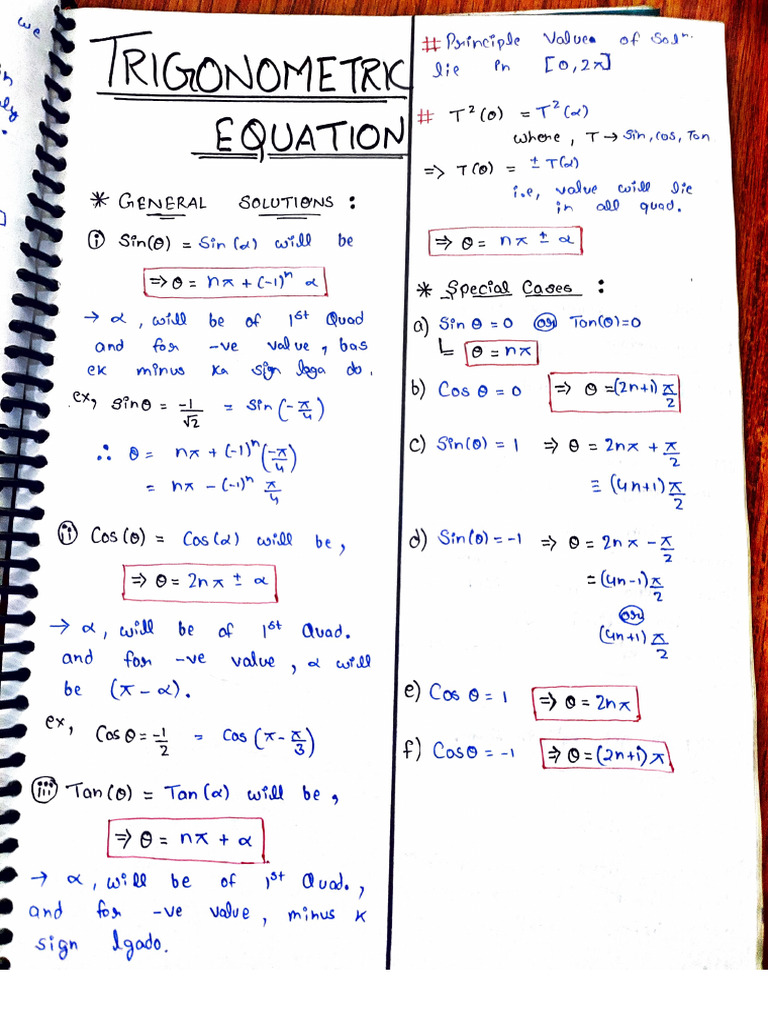 we
in
ly
TRIGONOMETRIC
EQUATION
* GENERAL SOLUTIONS :
(i) Sin(θ) = Sin(α) will be
⇒ θ = nπ + (-1)ⁿ α
→ α, will be of 1st Quad
and for -ve value, bas
ek minus ka sign laga do.
ex, Sinθ = -1/√2 = Sin(-π/4)
∴ θ = nπ + (-1)ⁿ(-π/4)
= nπ - (-1)ⁿ π/4
(ii) Cos(θ) = Cos(α) will be,
⇒ θ = 2nπ ± α
→ α, will be of 1st Quad.
and for -ve value, α will
be (π - α).
ex, Cosθ = -1/2 = Cos(π - π/3)
(iii) Tan(θ) = Tan(α) will be,
⇒ θ = nπ + α
→ α, will be of 1st Quad.,
and for -ve value, minus k
sign lgado.
# Principle Values of Solⁿ.
lie in [0, 2π]
# T²(θ) = T²(α)
where, T → Sin, Cos, Tan
⇒ T(θ) = ± T(α)
i.e, value will lie
in all quad.
⇒ θ = nπ ± α
* Special Cases :
a) Sin θ = 0 or Tan(θ)=0
θ = nπ
b) Cos θ = 0 ⇒ θ = (2n+1) π/2
c) Sin(θ) = 1 ⇒ θ = 2nπ + π/2
≡ (4n+1) π/2
d) Sin(θ) = -1 ⇒ θ = 2nπ - π/2
= (4n-1) π/2
or
(4n+1) π/2
e) Cos θ = 1 ⇒ θ = 2nπ
f) Cosθ = -1 ⇒ θ = (2n+1) π